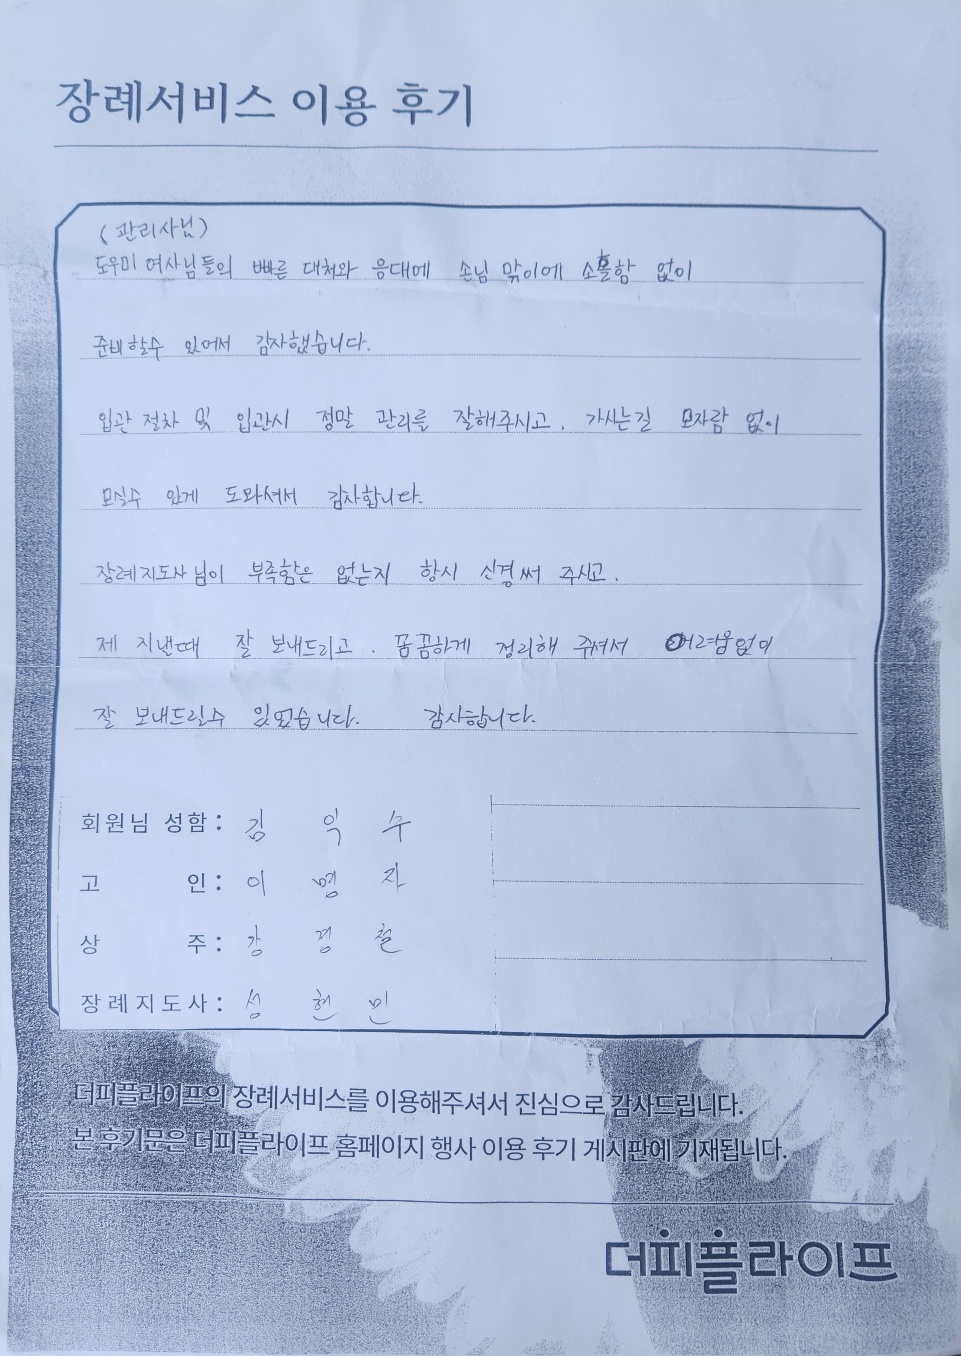 장례서비스 이용 후기
(관리사님)
도우미 여사님들의 빠른 대처와 응대에 손님 맞이에 소홀함 없이
준비할수 있어서 감사했습니다.
입관 절차 및 입관시 정말 관리를 잘해주시고, 가시는길 모자람 없이
모실수 있게 도와셔서 감사합니다.
장례지도사님이 부족함은 없는지 항시 신경써 주시고,
제 지낸때 잘 보내드리고, 꼼꼼하게 정리해 주셔서 어려움없이
잘 보내드릴수 있었습니다. 감사합니다.
회원님 성함: 김익수
고 인: 이명자
상 주: 강경철
장례지도사: 성현민
더피플라이프의 장례서비스를 이용해주셔서 진심으로 감사드립니다.
본 후기문은 더피플라이프 홈페이지 행사 이용 후기 게시판에 기재됩니다.
더피플라이프